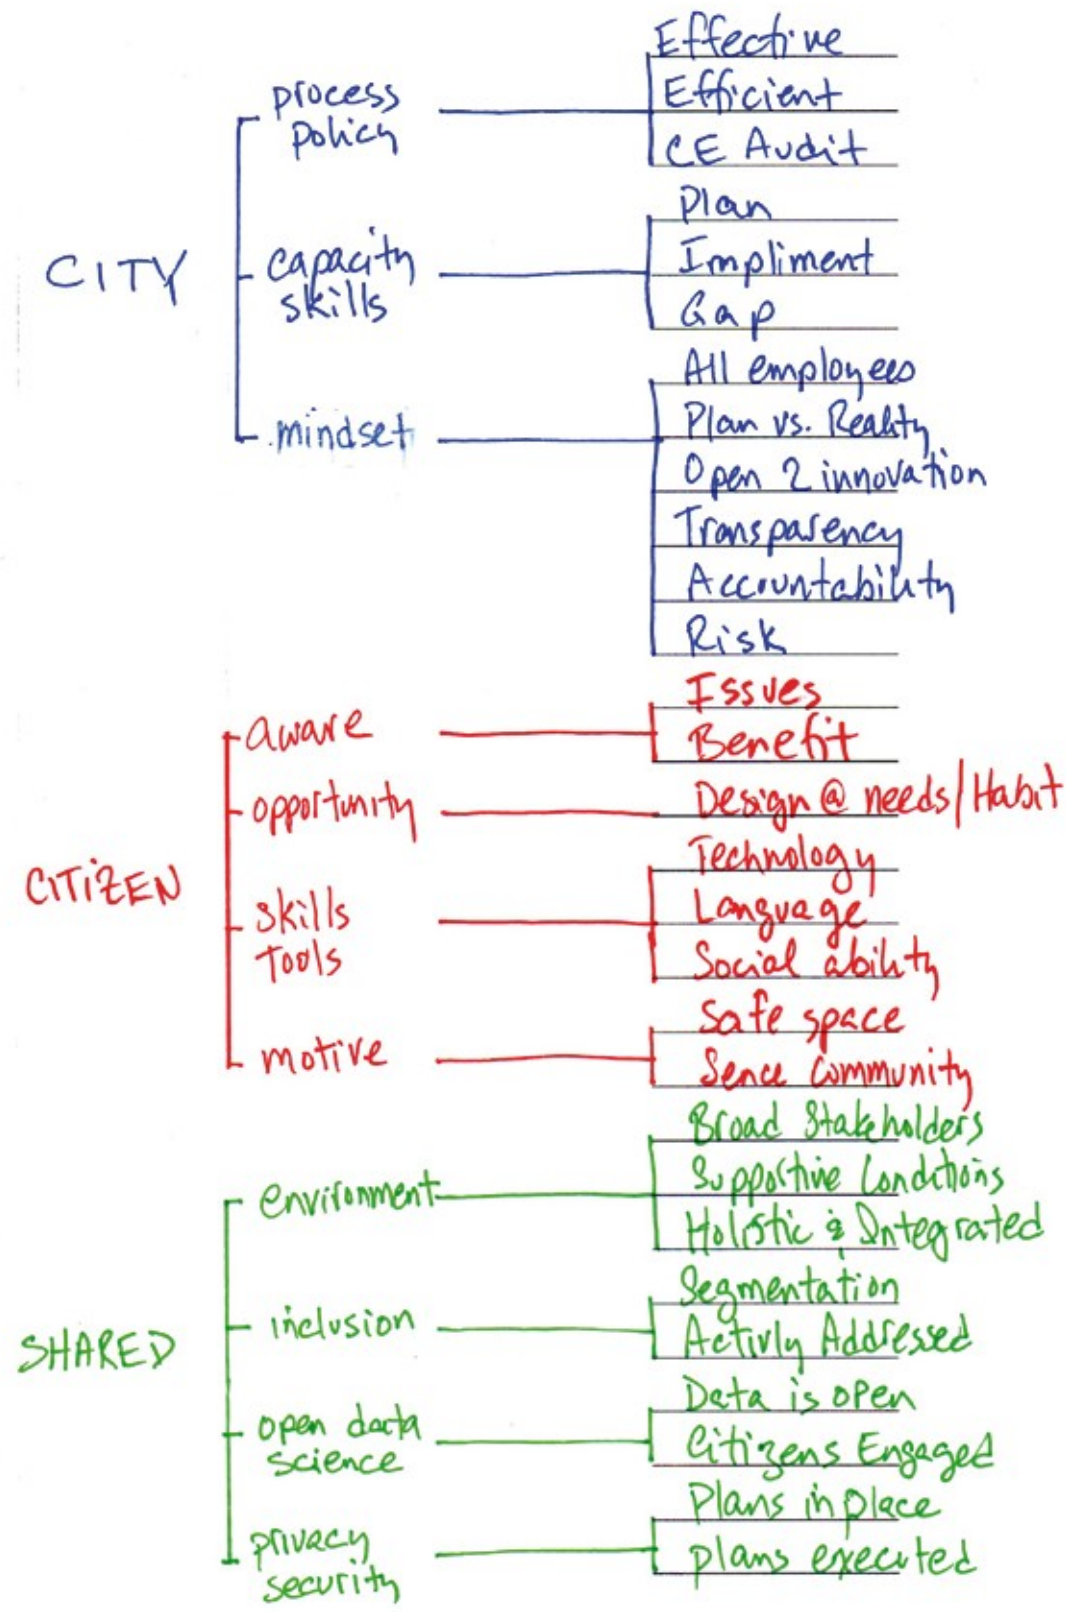 CITY
process
policy
Effective
Efficient
CE Audit
capacity
skills
Plan
Impliment
Gap
mindset
All employees
Plan vs. Reality
Open 2 innovation
Transparency
Accountability
Risk
CITIZEN
aware
Issues
Benefit
opportunity
Design @ needs/Habit
skills
Tools
Technology
Language
Social ability
motive
Safe space
Sence Community
SHARED
environment
Broad Stakeholders
Supportive Conditions
Holistic & Integrated
inclusion
Segmentation
Activly Addressed
open data
science
Data is open
Citizens Engaged
privacy
security
Plans in place
plans executed